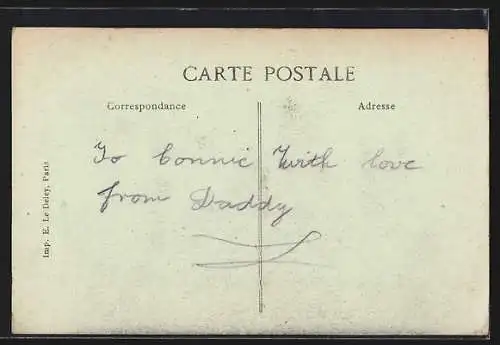 CARTE POSTALE
Correspondance
Adresse
To Connie With love
from Daddy
Imp. E. Le Deley, Paris